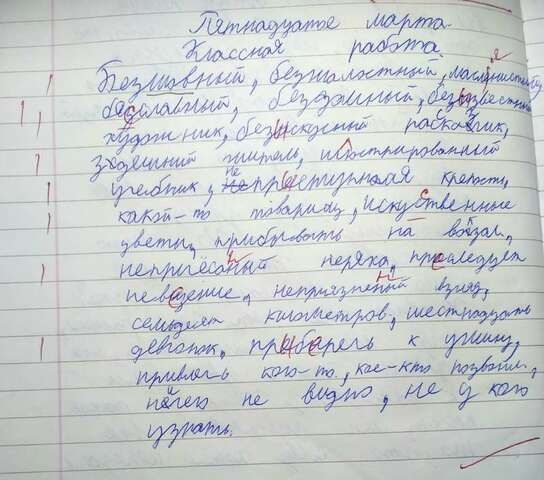 Пятнадцатое марта.
Классная работа.
Безмовный, безжалостный, маслянистый
бесславный, бездомный, безызвестный
художник, безвкусный расколник,
здешний житель, илюстрированный
учебник, неприступная крепость,
какой-то товарищ, искуственные
цветы, прибывать на вокзал,
непричёсаный неряха, преследует
невезение, неприязненый взгляд,
семьдесят километров, шестнадцать
девчонок, приберечь к ужину,
привлечь кого-то, кое-кто позвонил,
ничего не видно, не у кого
узнать.